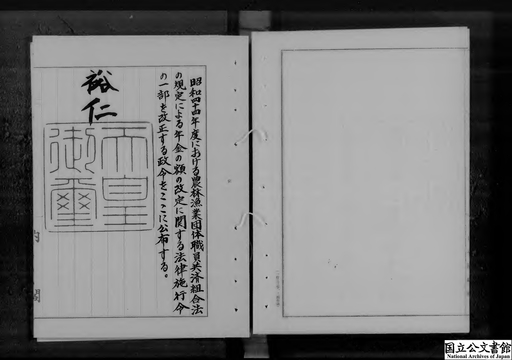 昭和四十四年度における農林漁業団体職員共済組合法
の規定による年金の額の改定に関する法律施行令
の一部を改正する政令をここに公布する。
裕仁
天皇
御璽
内閣
国立公文書館
National Archives of Japan